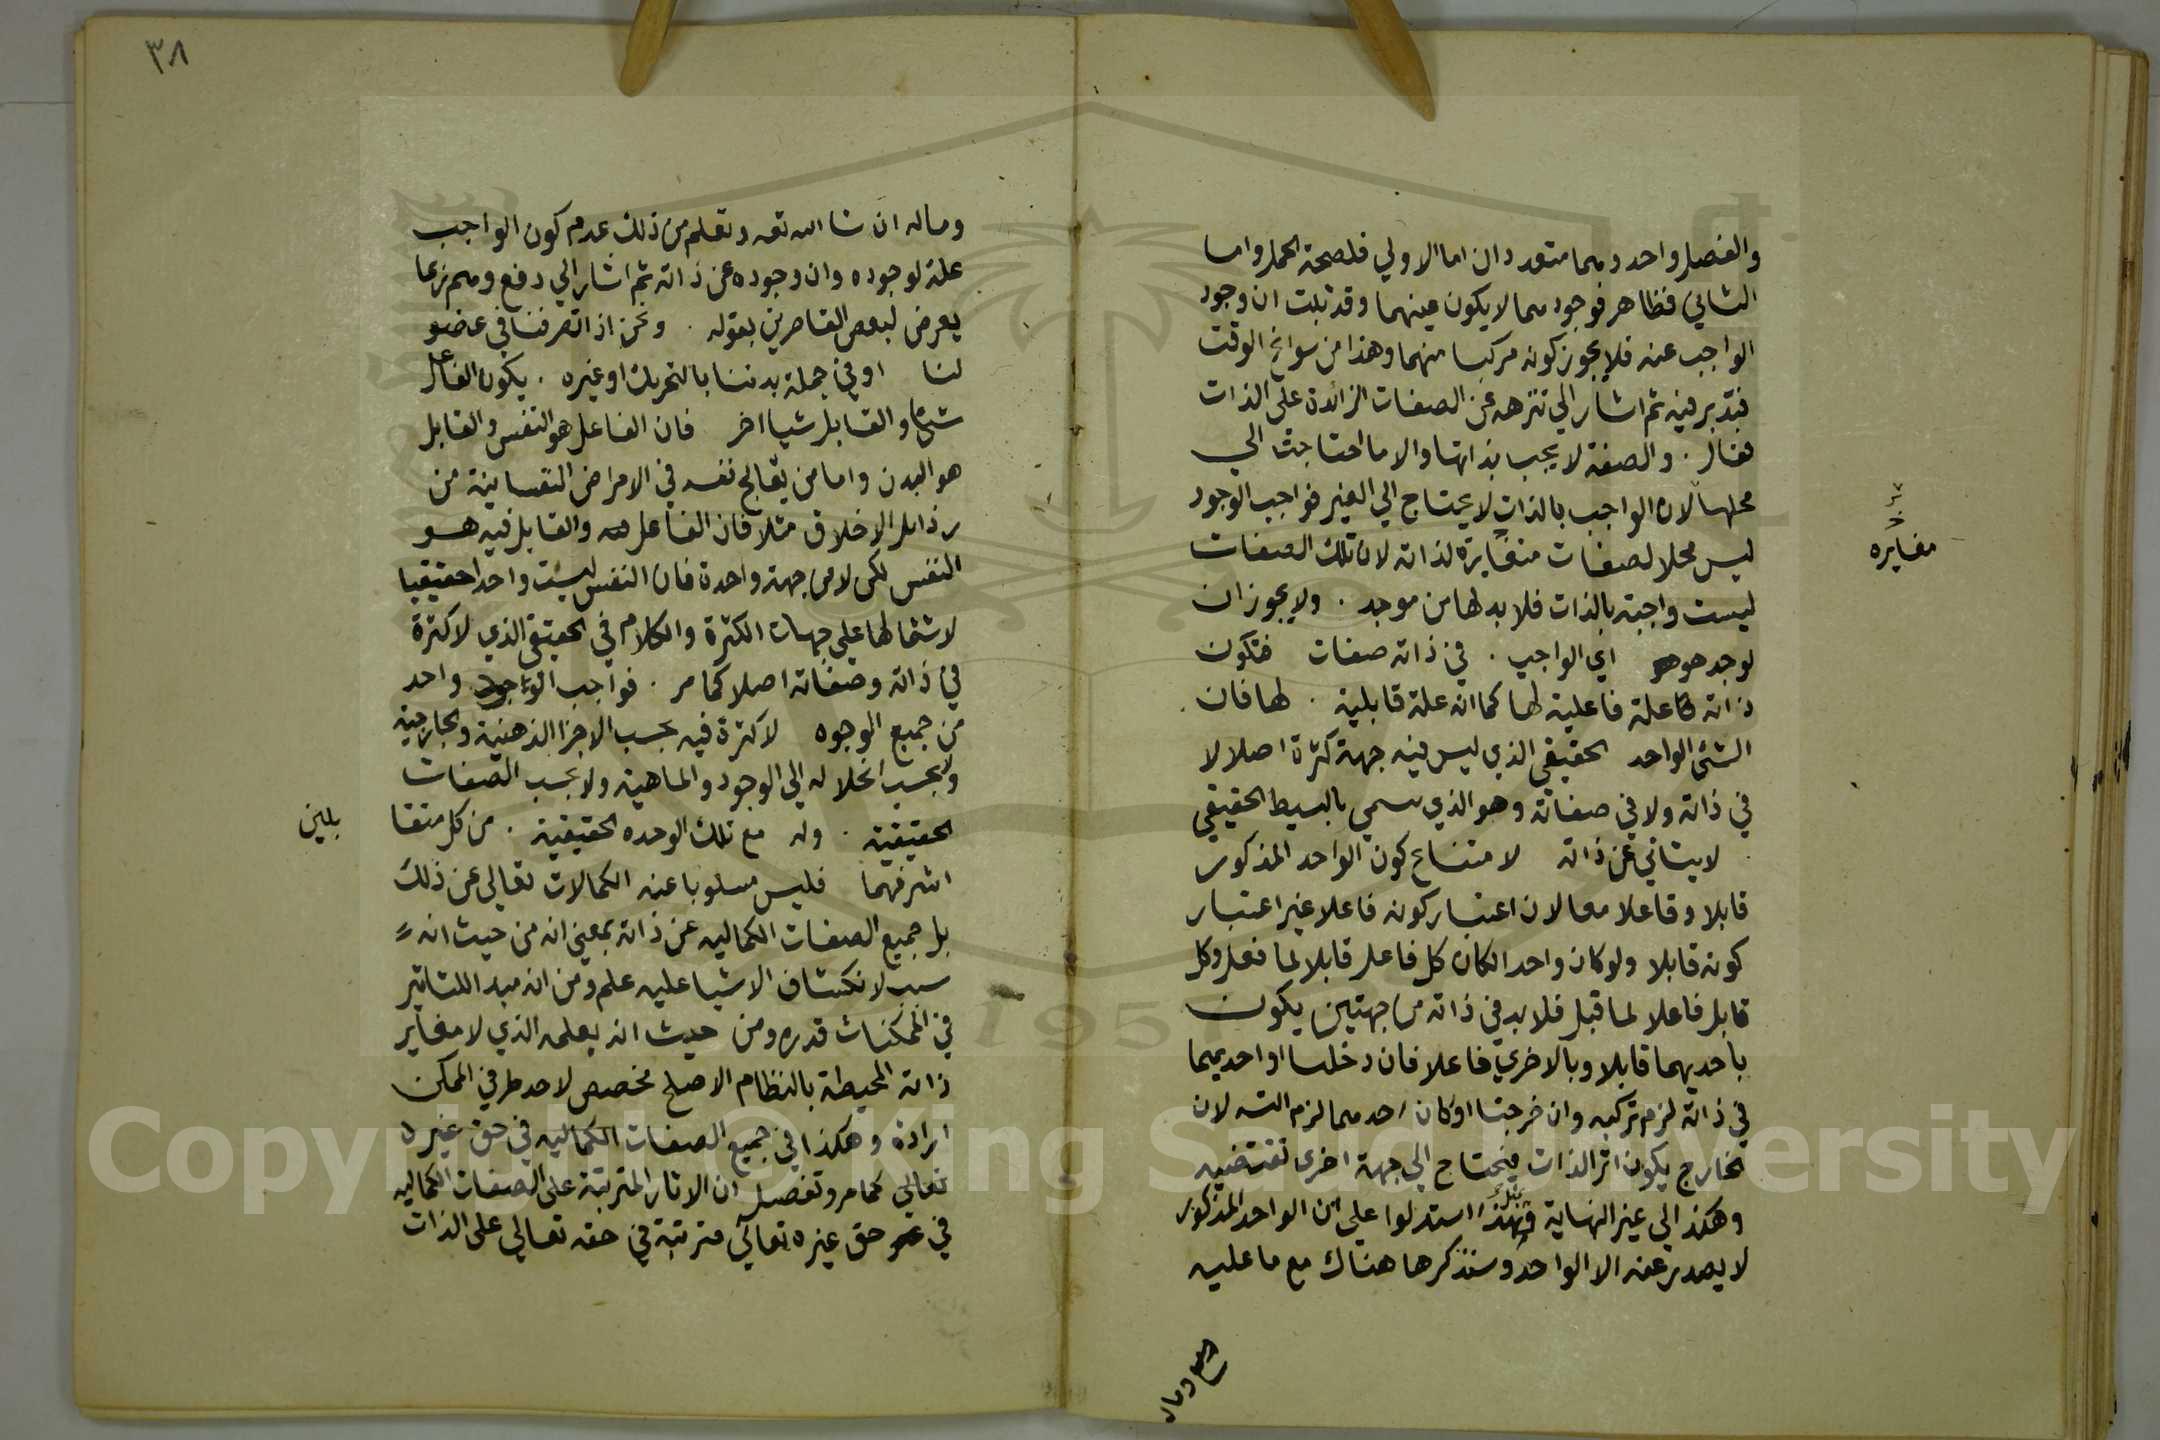 والفصل واحد وهما متعددان اما الاولي فلصحة الحمل واما
الثاني فظاهر فوجودهما لا يكون عينهما وقد ثبت ان وجود
الواجب عينه فلا يجوز كونه مركبا منهما وهذا من سوانح الوقت
فتدبر فيه ثم اشار الي تنزهه عن الصفات الزائدة على الذات
فقال . والصفة لا يجب بذاتها والا ما احتاجت الي
محلها لان الواجب بالذات لا يحتاج الي الغير فواجب الوجود
ليس محلا لصفات متغايرة لذاته لان تلك الصفات
مغايره
ليست واجبة بالذات فلا بد لها من موجد . ولا يجوز ان
يوجد هو اي الواجب . في ذاته صفات فتكون
ذاته علة فاعلية لها كما انه علة قابلية . لها فان
الشئ الواحد الحقيقي الذي ليس فيه جهة كثرة اصلا لا
في ذاته ولا في صفاته وهو الذي يسمي بالبسيط الحقيقي
. لا يتاتي عن ذاته لامتناع كون الواحد المذكور
قابلا وفاعلا معا لان اعتبار كونه فاعلا غير اعتبار
كونه قابلا ولو كان واحدا لكان كل فاعل قابلا لما فعل وكل
قابل فاعلا لما قبل فلا بد في ذاته من جهتين يكون
باحديهما قابلا وبالاخري فاعلا فان دخلتا او احديهما
في ذاته لزم تركبه وان خرجتا او كان احدهما لزم التسـ لان
الخارج يكون اثر الذات فيحتاج الي جهة اخرى تقتضيه
وهكذا الي غير النهاية وبمثل هذا استدلوا علي ان الواحد المذكور
لا يصدر عنه الا الواحد وسنذكرها هناك مع ما عليه
وماله
٣٨
وماله ان شا الله تعه وتعلم من ذلك عدم كون الواجب
علة لوجوده وان وجوده عن ذاته ثم اشار الي دفع وهم ربما
يعرض لبعض القاصرين بقوله . ونحن اذا تصرفنا في عضو
لنا او في جملة بدننا بالتحريك او غيره . يكون الفاعل
شئا والقابل شيا اخر فان الفاعل هو النفس والقابل
هو البدن واما من يعالج نفسه في الامراض النفسانية من
رذايل الاخلاق مثلا فان الفاعل فيه والقابل فيه هو
النفس لكن لا من جهة واحدة فان النفس ليست واحدا حقيقيا
لاشتمالها علي جهات الكثرة والكلام في الحقيقي الذي لا كثرة
في ذاته وصفاته اصلا كما مر . فواجب الوجود واحد
من جميع الوجوه لا كثرة فيه بحسب الاجزا الذهنية والخارجية
ولا بحسب انحلاله الي الوجود والماهية ولا بحسب الصفات
الحقيقية . وله مع تلك الوحده الحقيقية . من كل متقا
بلين
اشرفهما فليس مسلوبا عنه الكمالات تعالي عن ذلك
بل جميع الصفات الكماليه عن ذاته بمعني انه من حيث انه
سبب لانكشاف الاشيا عليه علم ومن انه مبدا للتاثير
في الممكنات قدره ومن حيث انه بعلمه الذي لا مغاير
ذاته المحيطة بالنظام الاصلح مخصص لاحد طرفي الممكن
ارادة وهكذا في جميع الصفات الكماليه في حق غيره
تعالي كما مر وتفصيل ان الاثار المترتبة على الصفات الكماليه
في حق غيره تعالي مترتبة في حقه تعالي على الذات
Copyright © King Saud University
195